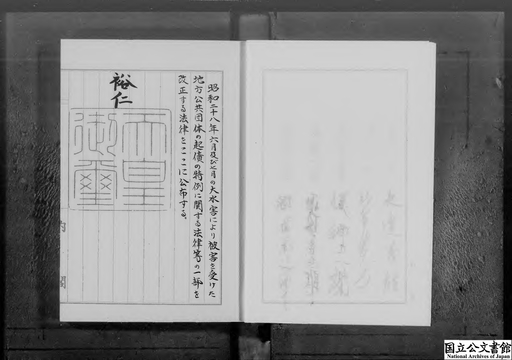 昭和二十八年六月及び七月の大水害により被害を受けた
地方公共団体の起債の特例に関する法律等の一部を
改正する法律をここに公布する。
裕仁
天皇
御璽
内閣
国立公文書館
National Archives of Japan